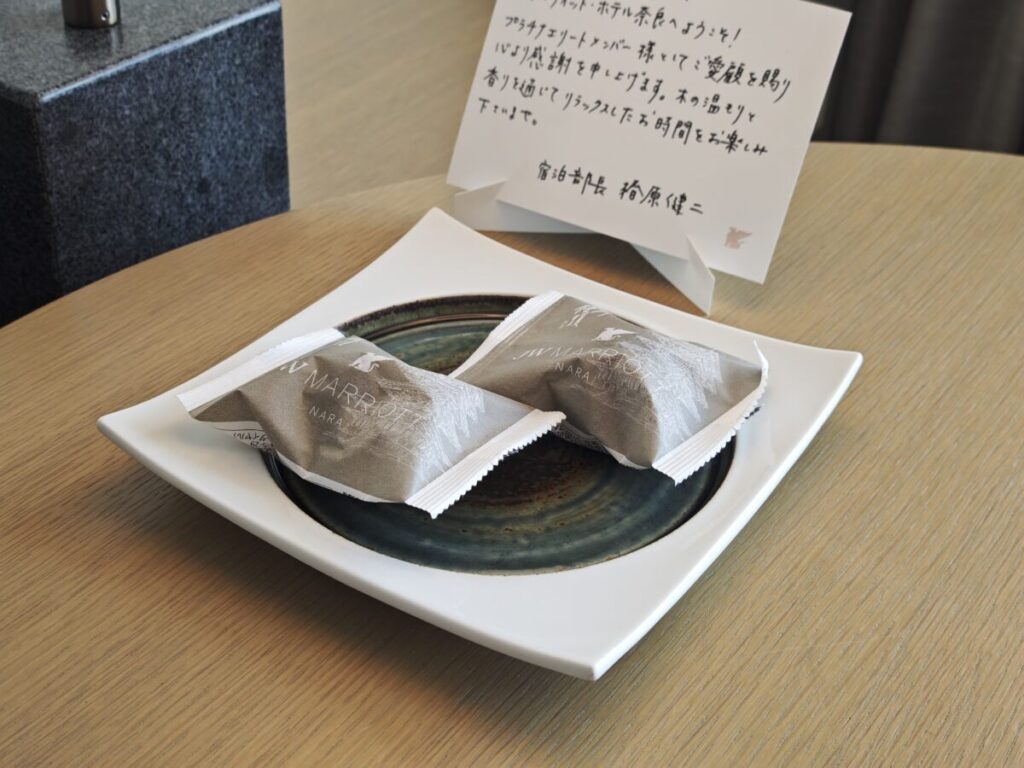 ィット・ホテル奈良へようこそ!
プラチナエリートメンバー様としてご愛顧を賜り
心より感謝を申し上げます。木の温もりと
香りを通じてリラックスしたお時間をお楽しみ
下さいませ。
宿泊部長 檜原健二
JW MARRIOTT
NARA
JW MARRIOTT
NARA